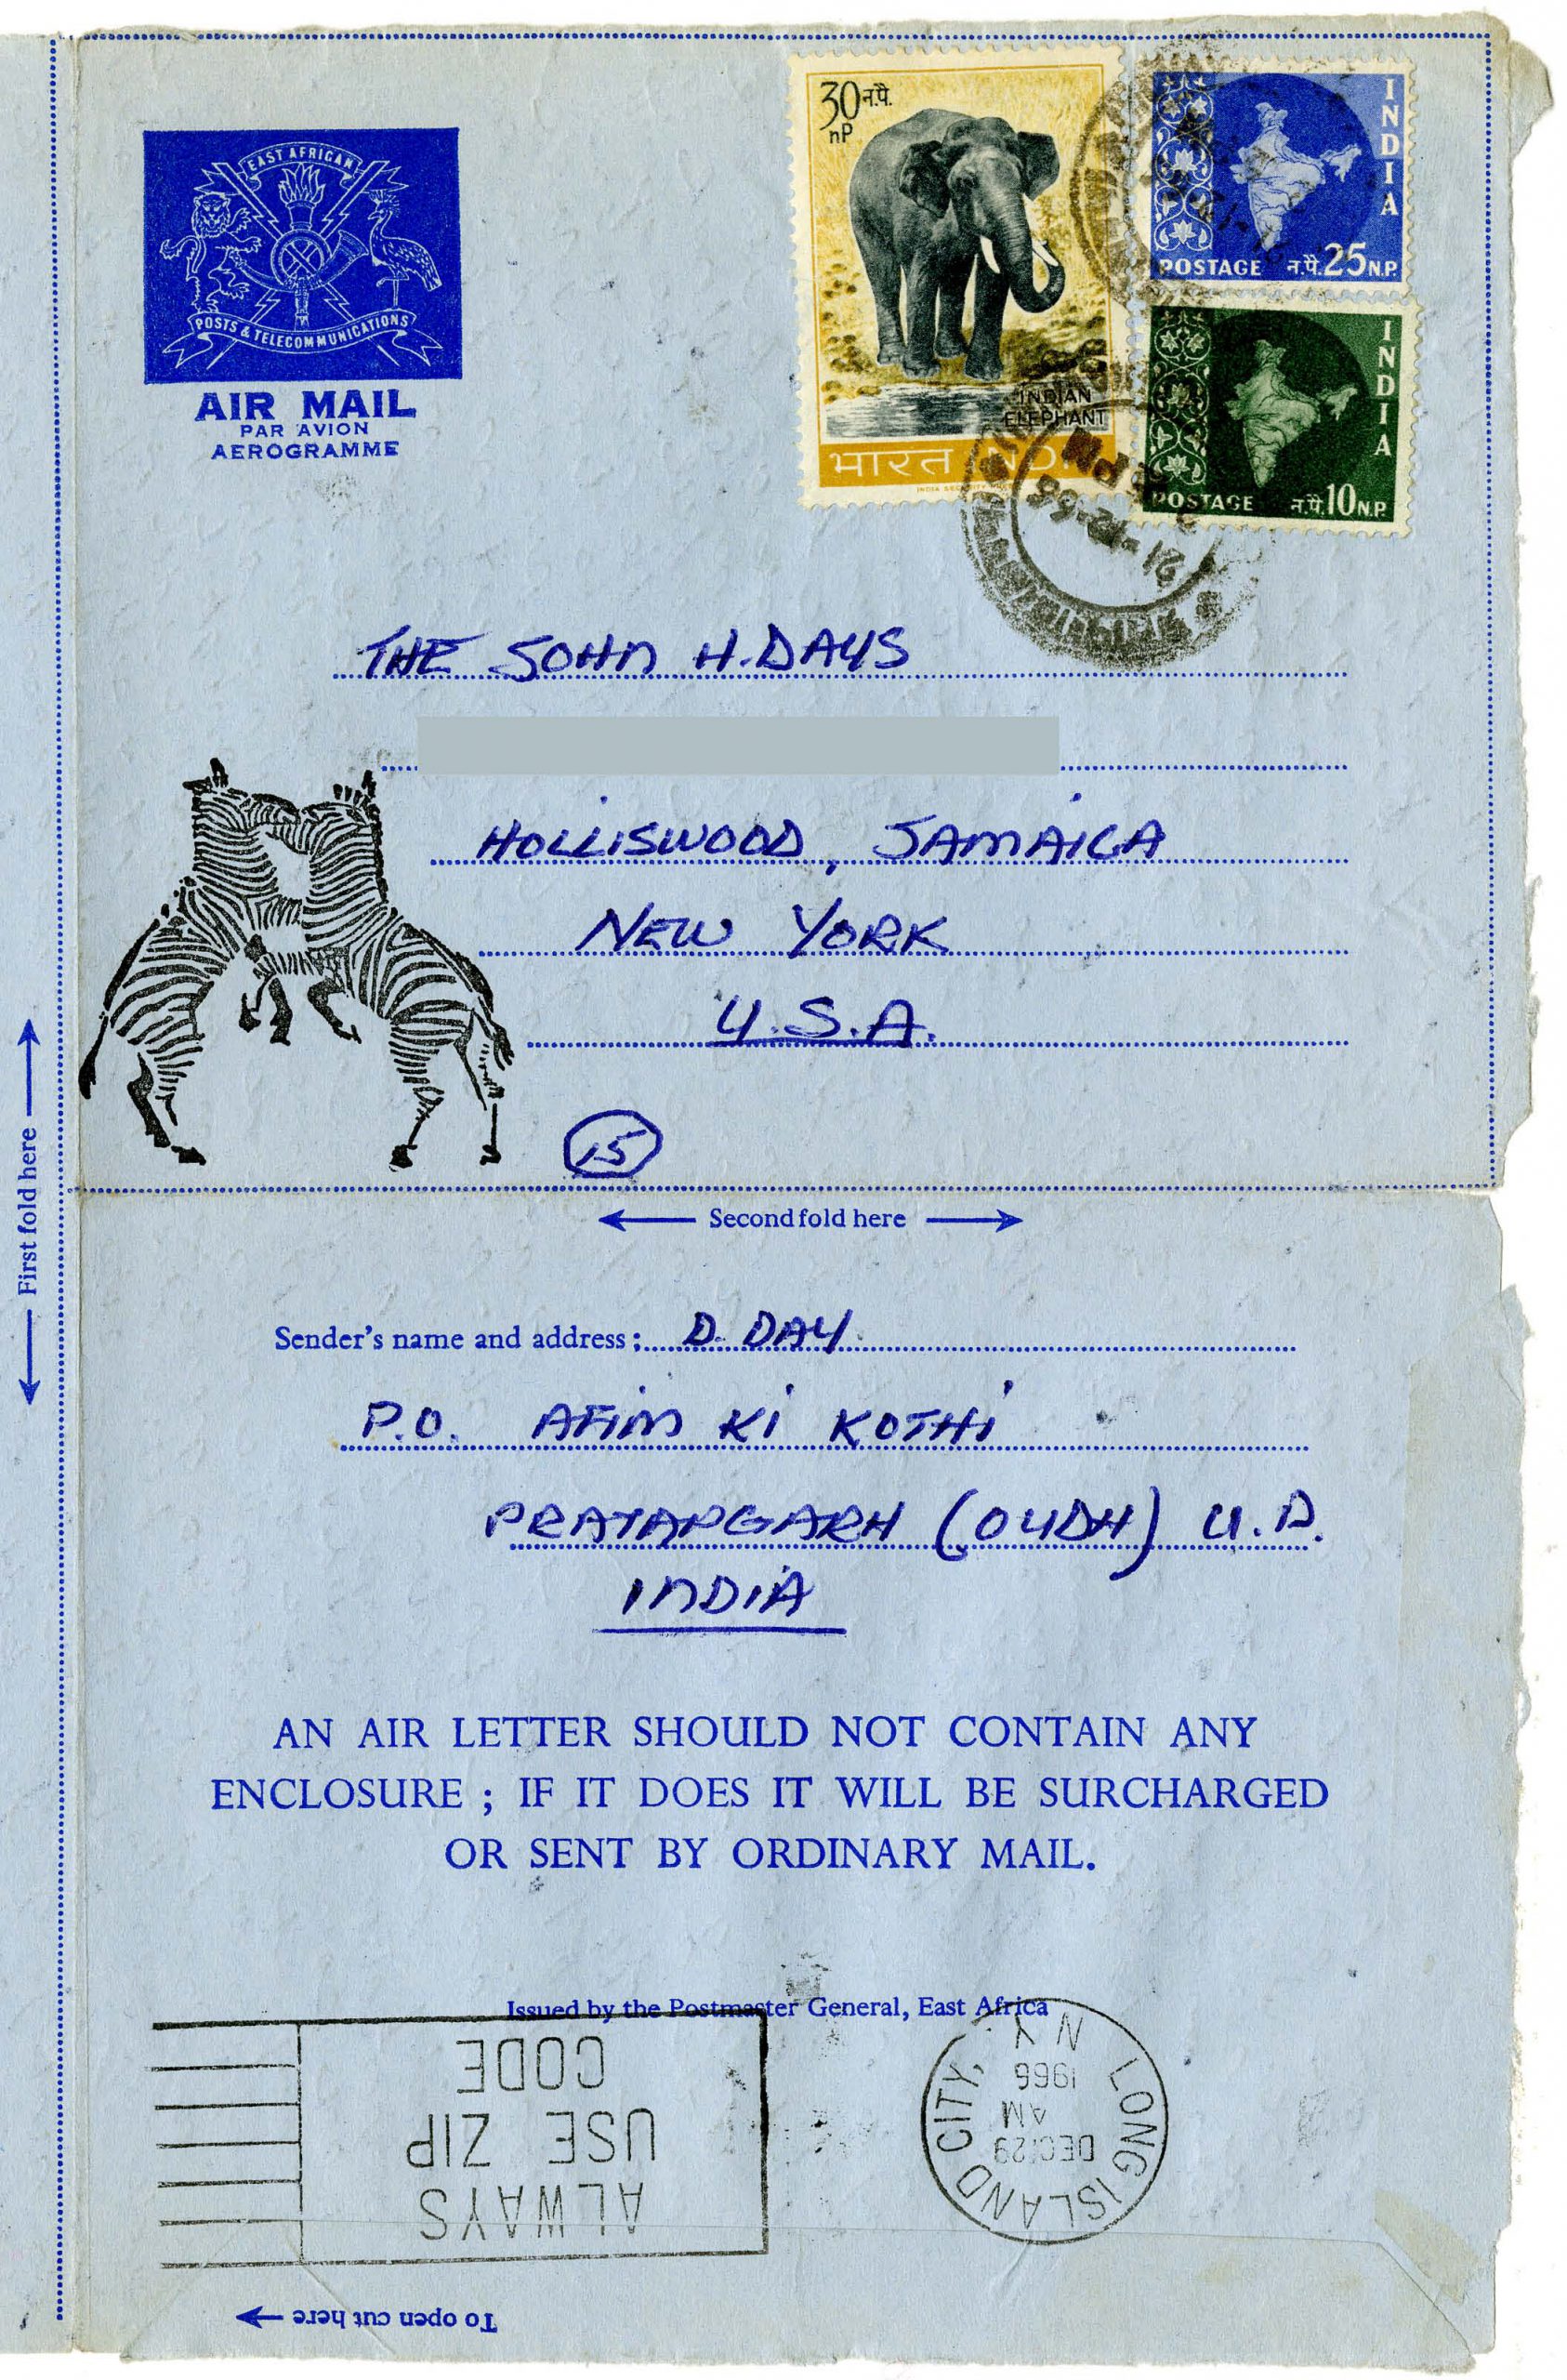 EAST AFRICAN
POSTS & TELECOMMUNICATIONS
AIR MAIL
PAR AVION
AEROGRAMME
30 न.पै.
nP
INDIAN
ELEPHANT
भारत INDIA
INDIA
POSTAGE न.पै. 25 N.P.
INDIA
POSTAGE न.पै. 10 N.P.
PM
21-12-66
THE JOHN H. DAYS
HOLLISWOOD, JAMAICA
NEW YORK
U.S.A.
15
First fold here
Second fold here
Sender's name and address: D. DAY
P.O. AFIM KI KOTHI
PRATAPGARH (OUDH) U.P.
INDIA
AN AIR LETTER SHOULD NOT CONTAIN ANY
ENCLOSURE ; IF IT DOES IT WILL BE SURCHARGED
OR SENT BY ORDINARY MAIL.
Issued by the Postmaster General, East Africa
ALWAYS
USE ZIP
CODE
LONG ISLAND CITY, N.Y.
DEC 29
AM
1966
To open cut here